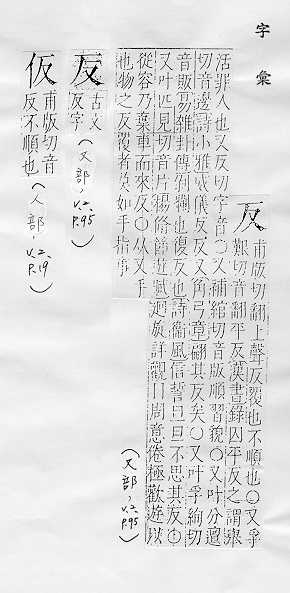 字彙
反
甫版切翻上聲反覆也不順也〇又孚
艱切音翻平反漢書錄囚平反之謂舉
活罪人也又反切字音〇又補綰切音版順習貌〇又叶分邅
切音邊詩小雅威儀反反又角弓章翩其反矣〇又叶孚絢切
音販易雜卦傳剝爛也復反也詩衛風信誓旦旦不思其反〇
又叶匹見切音片楊脩節遊賦迴旋詳觀目周意倦極歡遊以
從容乃棄車而來反〇从又手
也物之反覆者莫如手指事
(又部, V.2, P.95)
反
古文
反字
(又部, V.2, P.95)
仮
甫版切音
反不順也
(人部, V.2, P.19)